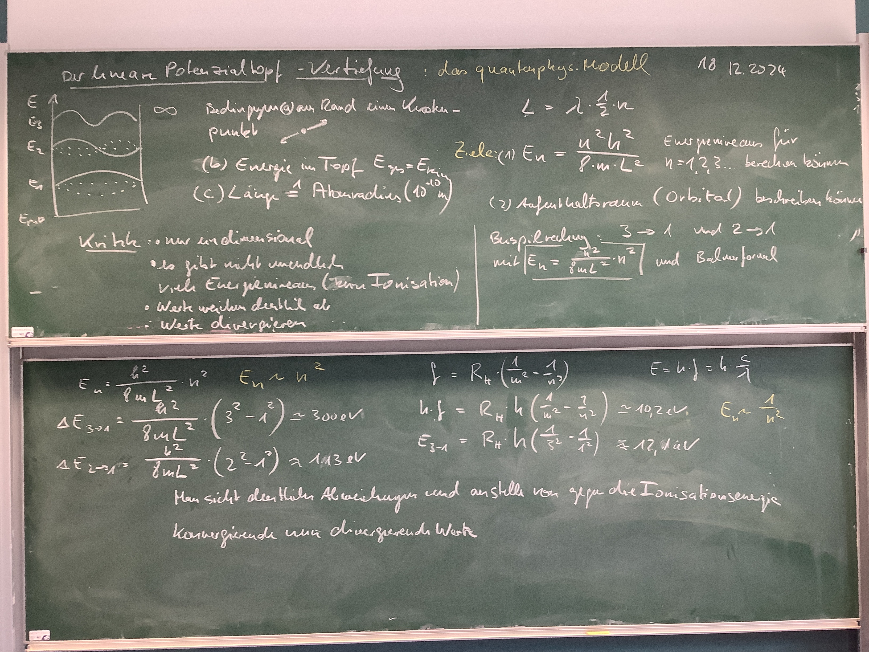 Der lineare Potenzialtopf - Vertiefung : das quantenphys. Modell 18.12.2024
E
E₃
E₂
E₁
∞
Bedingungen (a) am Rand einen Knoten-
punkt
(b) Energie im Topf E_ges = E_kin
(c) Länge ≙ Atomradius (10⁻¹⁰ m)
L = λ · 1/2 · n
Ziele: (1) Eₙ = n² h² / (8 · m · L²) Energieniveaus für
n = 1, 2, 3 ... berechnen können
(2) Aufenthaltsraum (Orbital) beschreiben können
Kritik: • nur eindimensional
• es gibt nicht unendlich
viele Energieniveaus (Ionisation)
• Werte weichen deutlich ab
• Werte divergieren
Beispielrechnung: 3 → 1 und 2 → 1
mit Eₙ = h² / (8mL²) · n² und Balmerformel
Eₙ = h² / (8mL²) · n² Eₙ ~ n²
ΔE₃→₁ = h² / (8mL²) · (3² - 1²) ≃ 300 eV
ΔE₂→₁ = h² / (8mL²) · (2² - 1²) ≈ 113 eV
f = R_H · (1/m² - 1/n²) E = h · f = h c/λ
h · f = R_H · h (1/m² - 1/n²) ≃ 10,2 eV Eₙ ~ 1/n²
E₃₋₁ = R_H · h (1/3² - 1/1²) ≈ 12,1 eV
Man sieht deutliche Abweichungen und anstelle von gegen die Ionisationsenergie
konvergierende nun divergierende Werte